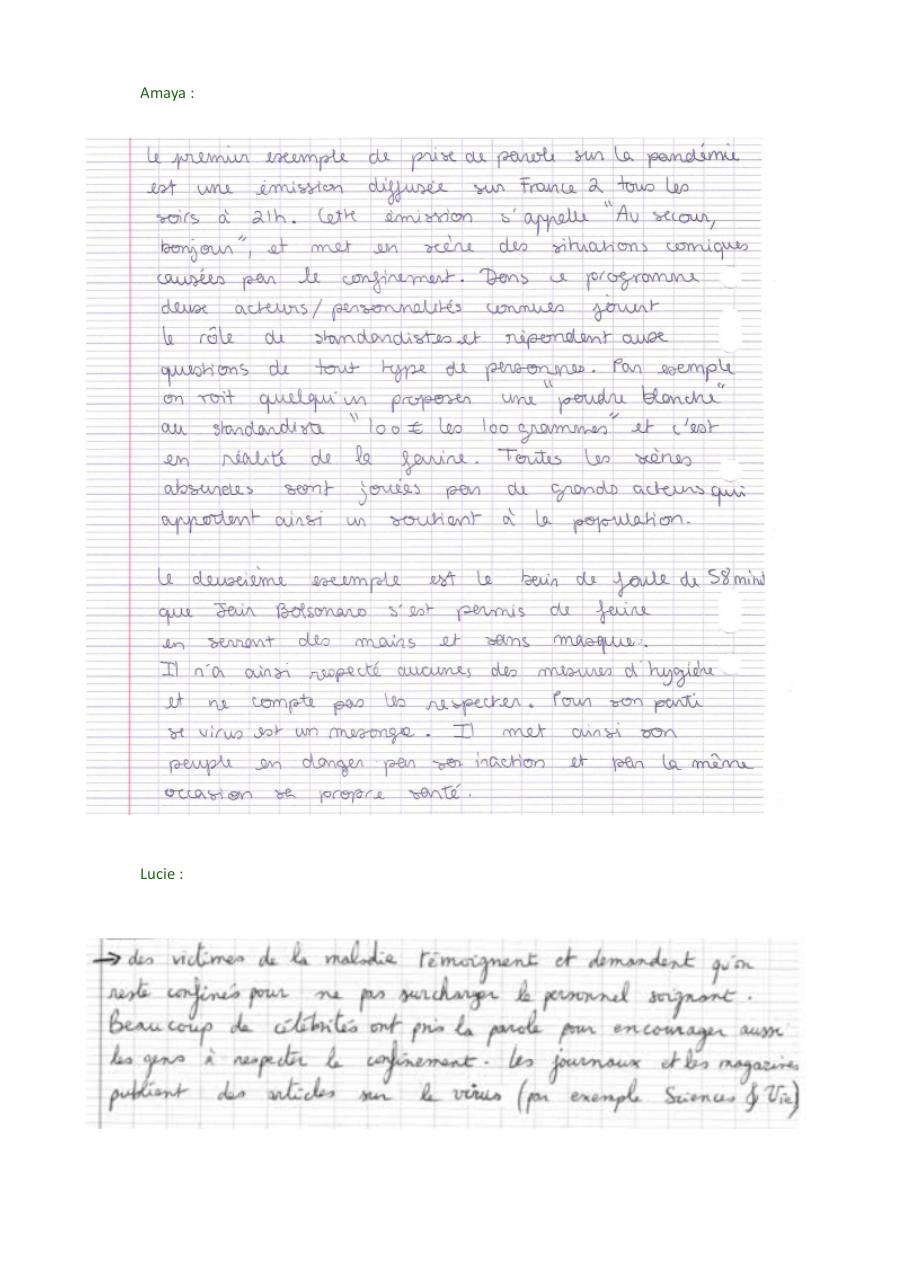 Amaya :
Le premier exemple de prise de parole sur la pandémie
est une émission diffusée sur France 2 tous les
soirs à 21h. Cette émission s'appelle "Au secour,
bonjour", et met en scène des situations comiques
causées par le confinement. Dans ce programme
deux acteurs/personnalités connues jouent
le rôle de standardistes et répendent aux
questions de tout type de personnes. Par exemple
on voit quelqu'un proposer une "poudre blanche"
au standardiste "100€ les 100 grammes" et c'est
en réalité de la farine. Toutes les scènes
absurdes sont jouées par de grands acteurs qui
apportent ainsi un soutient à la population.
Le deuxième exemple est le bain de foule de 58 min
que Jair Bolsonaro s'est permis de faire
en serrant des mains et sans masque.
Il n'a ainsi respecté aucunes des mesures d'hygiène
et ne compte pas les respecter. Pour son parti
se virus est un mesonge. Il met ainsi son
peuple en danger par son inaction et par la même
occasion sa propre santé.
Lucie :
→ des victimes de la maladie témoignent et demandent qu'on
reste confinés pour ne pas surcharger le personnel soignant.
Beaucoup de célébrités ont pris la parole pour encourager aussi
les gens à respecter le confinement. Les journaux et les magazines
publient des articles sur le virus (par exemple Sciences & Vie)